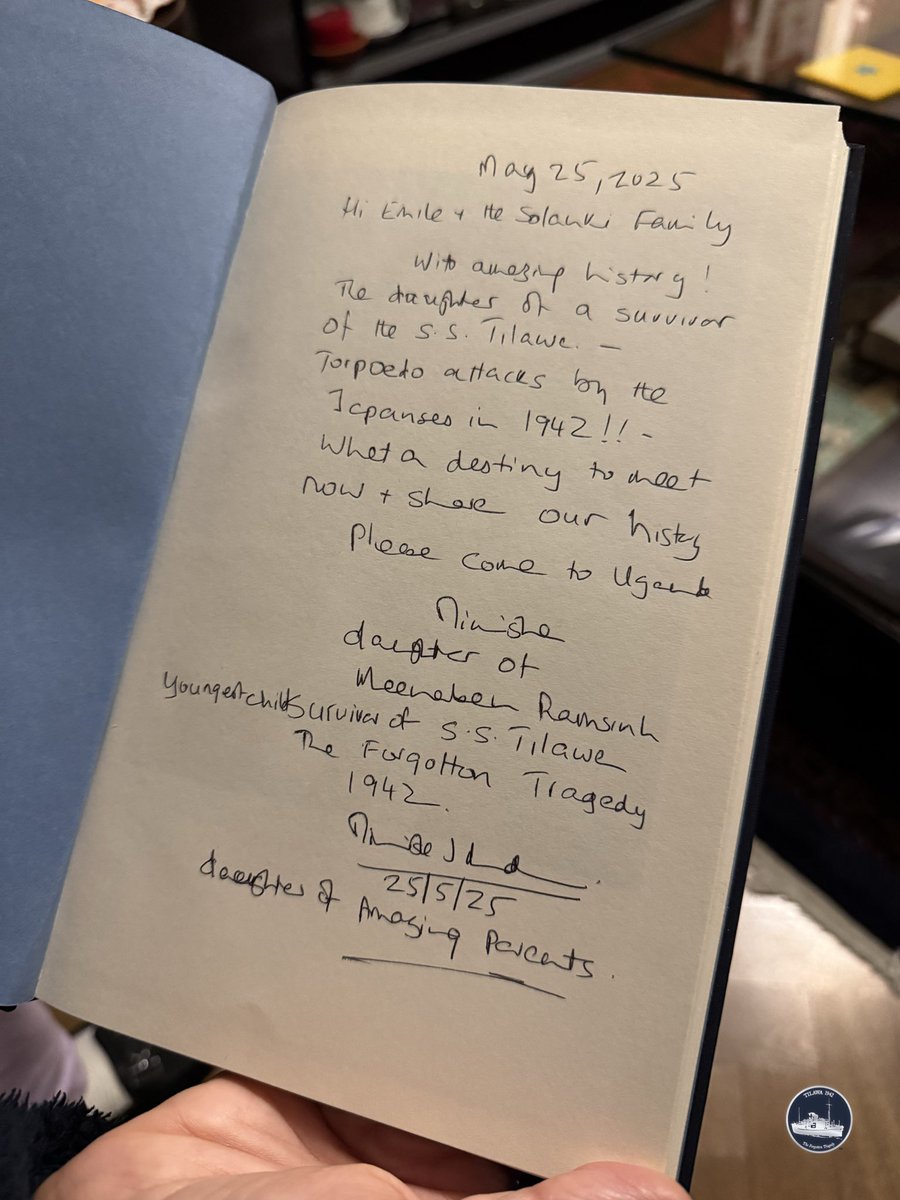 May 25, 2025
Hi Emile + the Solanki Family
With amazing history!
The daughter of a survivor
of the S.S. Tilawa. —
Torpoedo attacks by the
Japanses in 1942!! -
What a destiny to meet
now + share our history
Please come to Uganda
Minisha
daughter of
Meenaben Ramsinh
Youngest child survivor of S.S. Tilawa
The Forgotton Tragedy
1942.
25/5/25
daughter of Amazing Parents.
TILAWA 1942
The Forgotten Tragedy